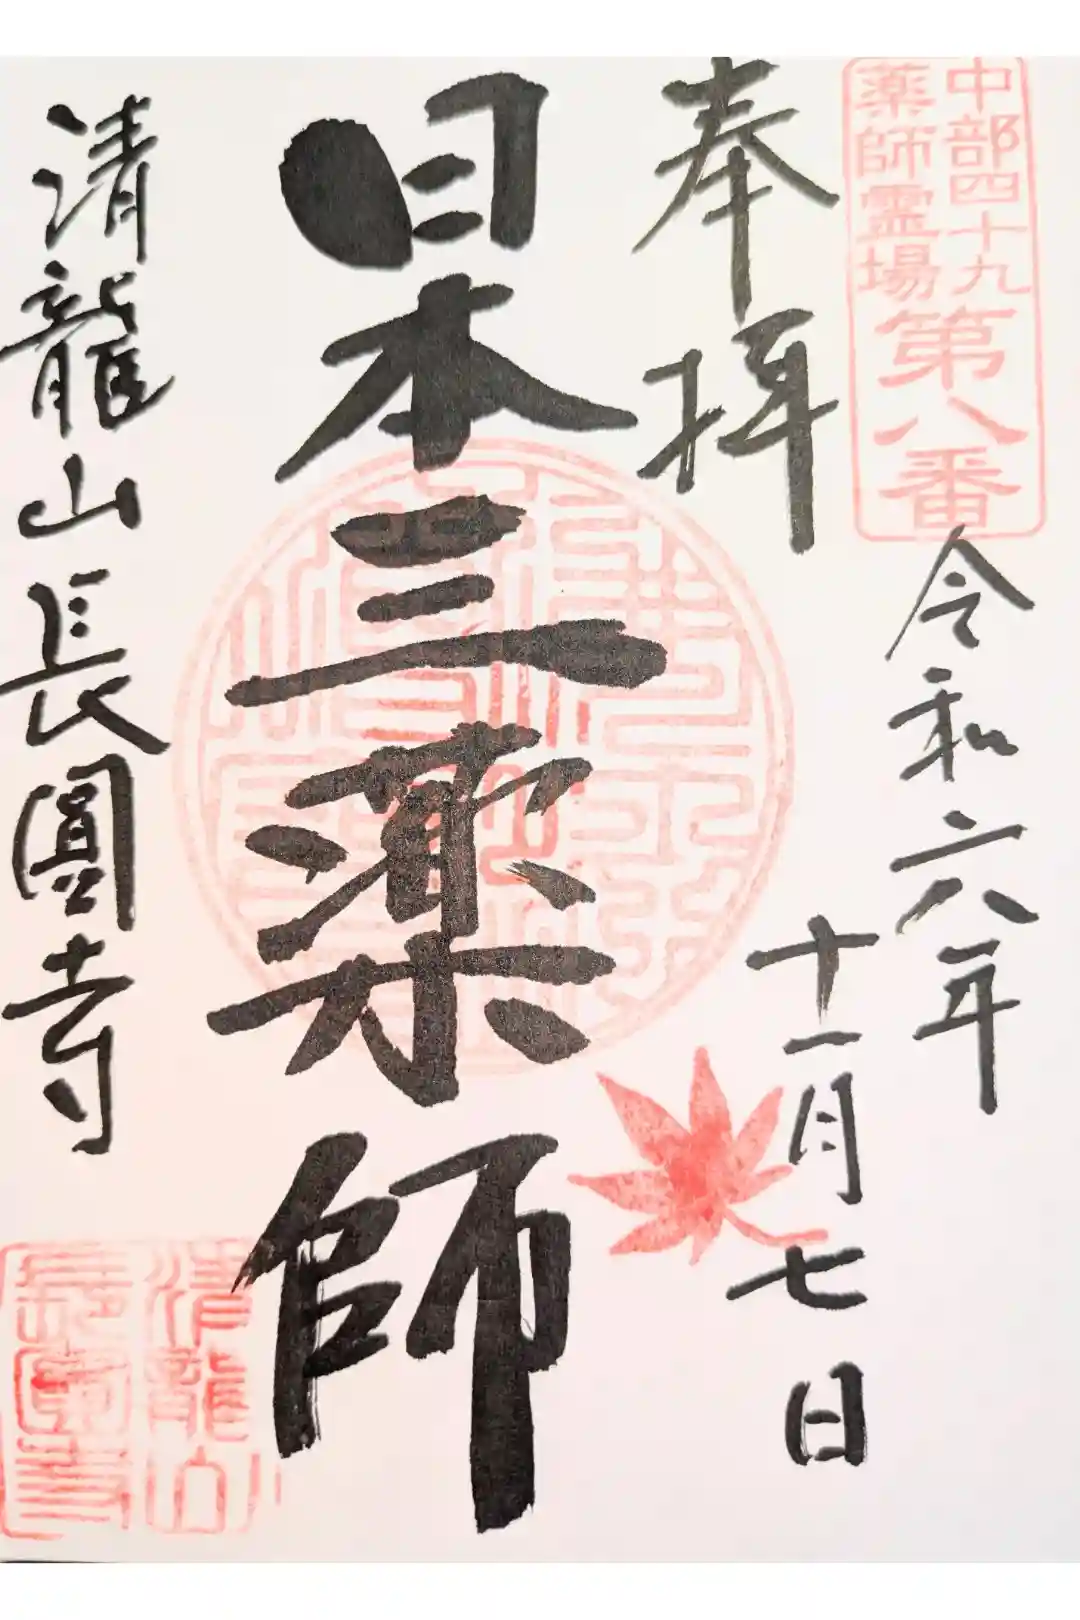 中部四十九
薬師霊場
第八番
令和六年
十一月七日
奉拝
日本三薬師
清龍山長圓寺
清龍山
長圓寺